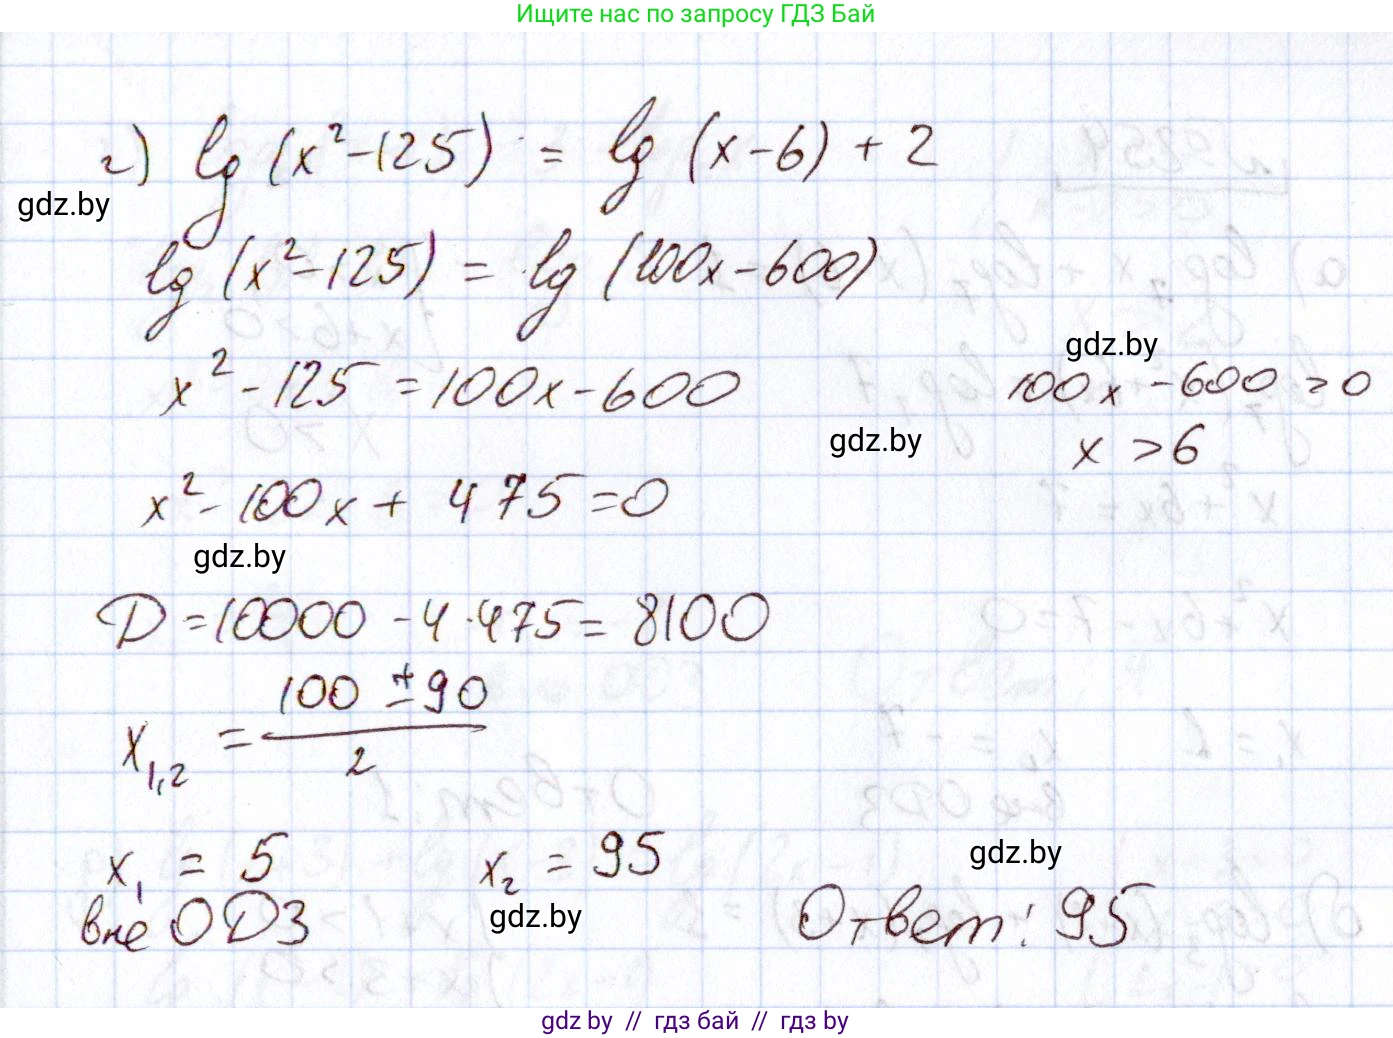 Ищите нас по запросу ГДЗ Бай
г) lg (x² - 125) = lg (x - 6) + 2
gdz.by
lg (x² - 125) = lg (100x - 600)
gdz.by
x² - 125 = 100x - 600
100x - 600 > 0
gdz.by
x > 6
x² - 100x + 475 = 0
gdz.by
D = 10000 - 4 · 475 = 8100
x₁,₂ = (100 ± 90) / 2
x₁ = 5 x₂ = 95
gdz.by
вне ОДЗ
gdz.by
Ответ: 95
gdz by // гдз бай // гдз by